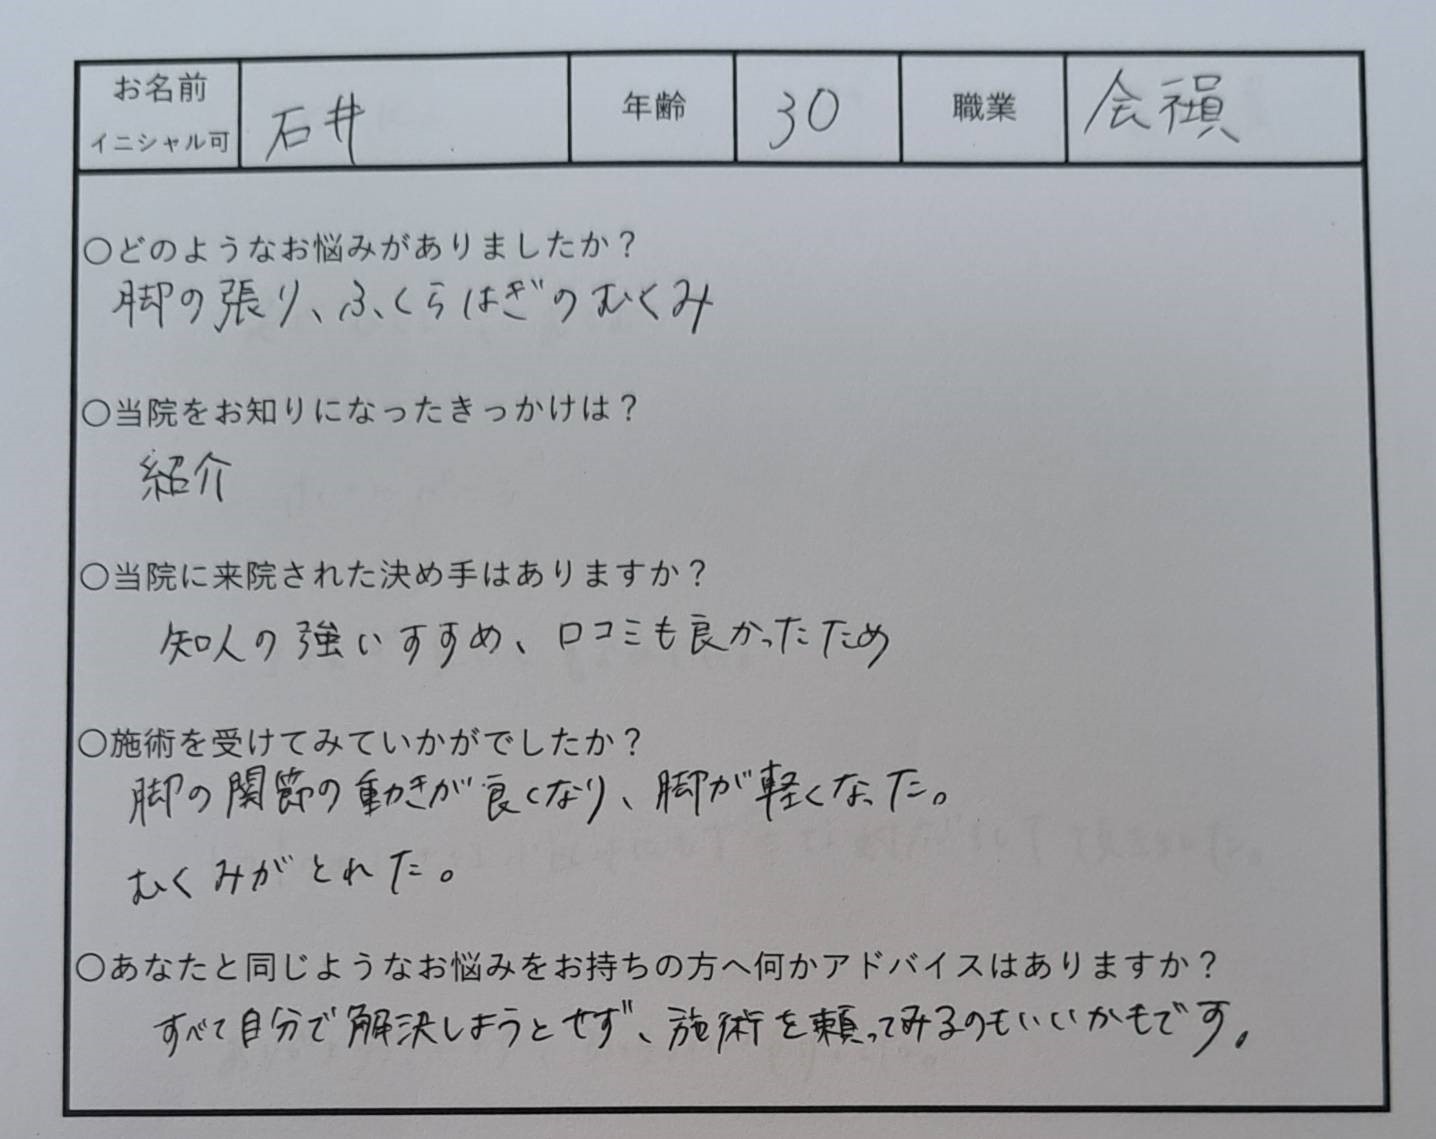 お名前
イニシャル可
石井
年齢
30
職業
会社員
○どのようなお悩みがありましたか？
脚の張り、ふくらはぎのむくみ
○当院をお知りになったきっかけは？
紹介
○当院に来院された決め手はありますか？
知人の強いすすめ、口コミも良かったため
○施術を受けてみていかがでしたか？
脚の関節の動きが良くなり、脚が軽くなった。
むくみがとれた。
○あなたと同じようなお悩みをお持ちの方へ何かアドバイスはありますか？
すべて自分で解決しようとせず、施術を頼ってみるのもいいかもです。